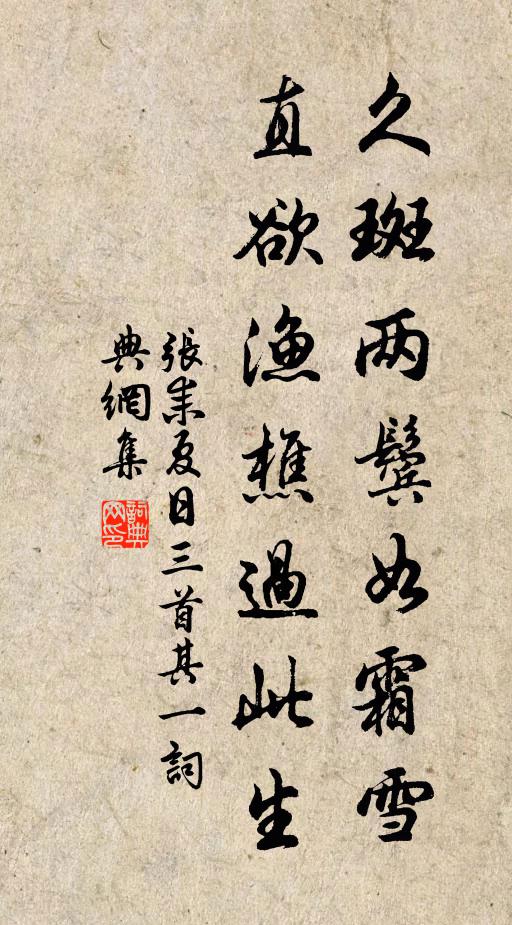 久斑两鬓如霜雪
直欲漁樵過此生
張耒夏日三首其一詞
典網集
詞典
网印